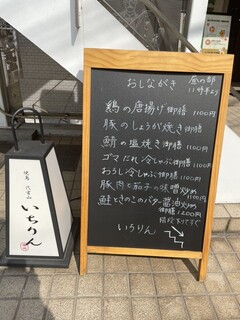 おしながき
昼の部
11時半より
鶏の唐揚げ御膳 1100円
豚のしょうが焼き御膳 1100円
鯖の塩焼き御膳 1100円
ゴマだれ冷しゃぶ御膳 1100円
おろし冷しゃぶ御膳 1100円
豚肉と茄子の味噌炒め 1100円
鮭ときのこのバター醤油炒め
御膳 1200円
階段あがってすぐ
いちりん
代官山
いちりん